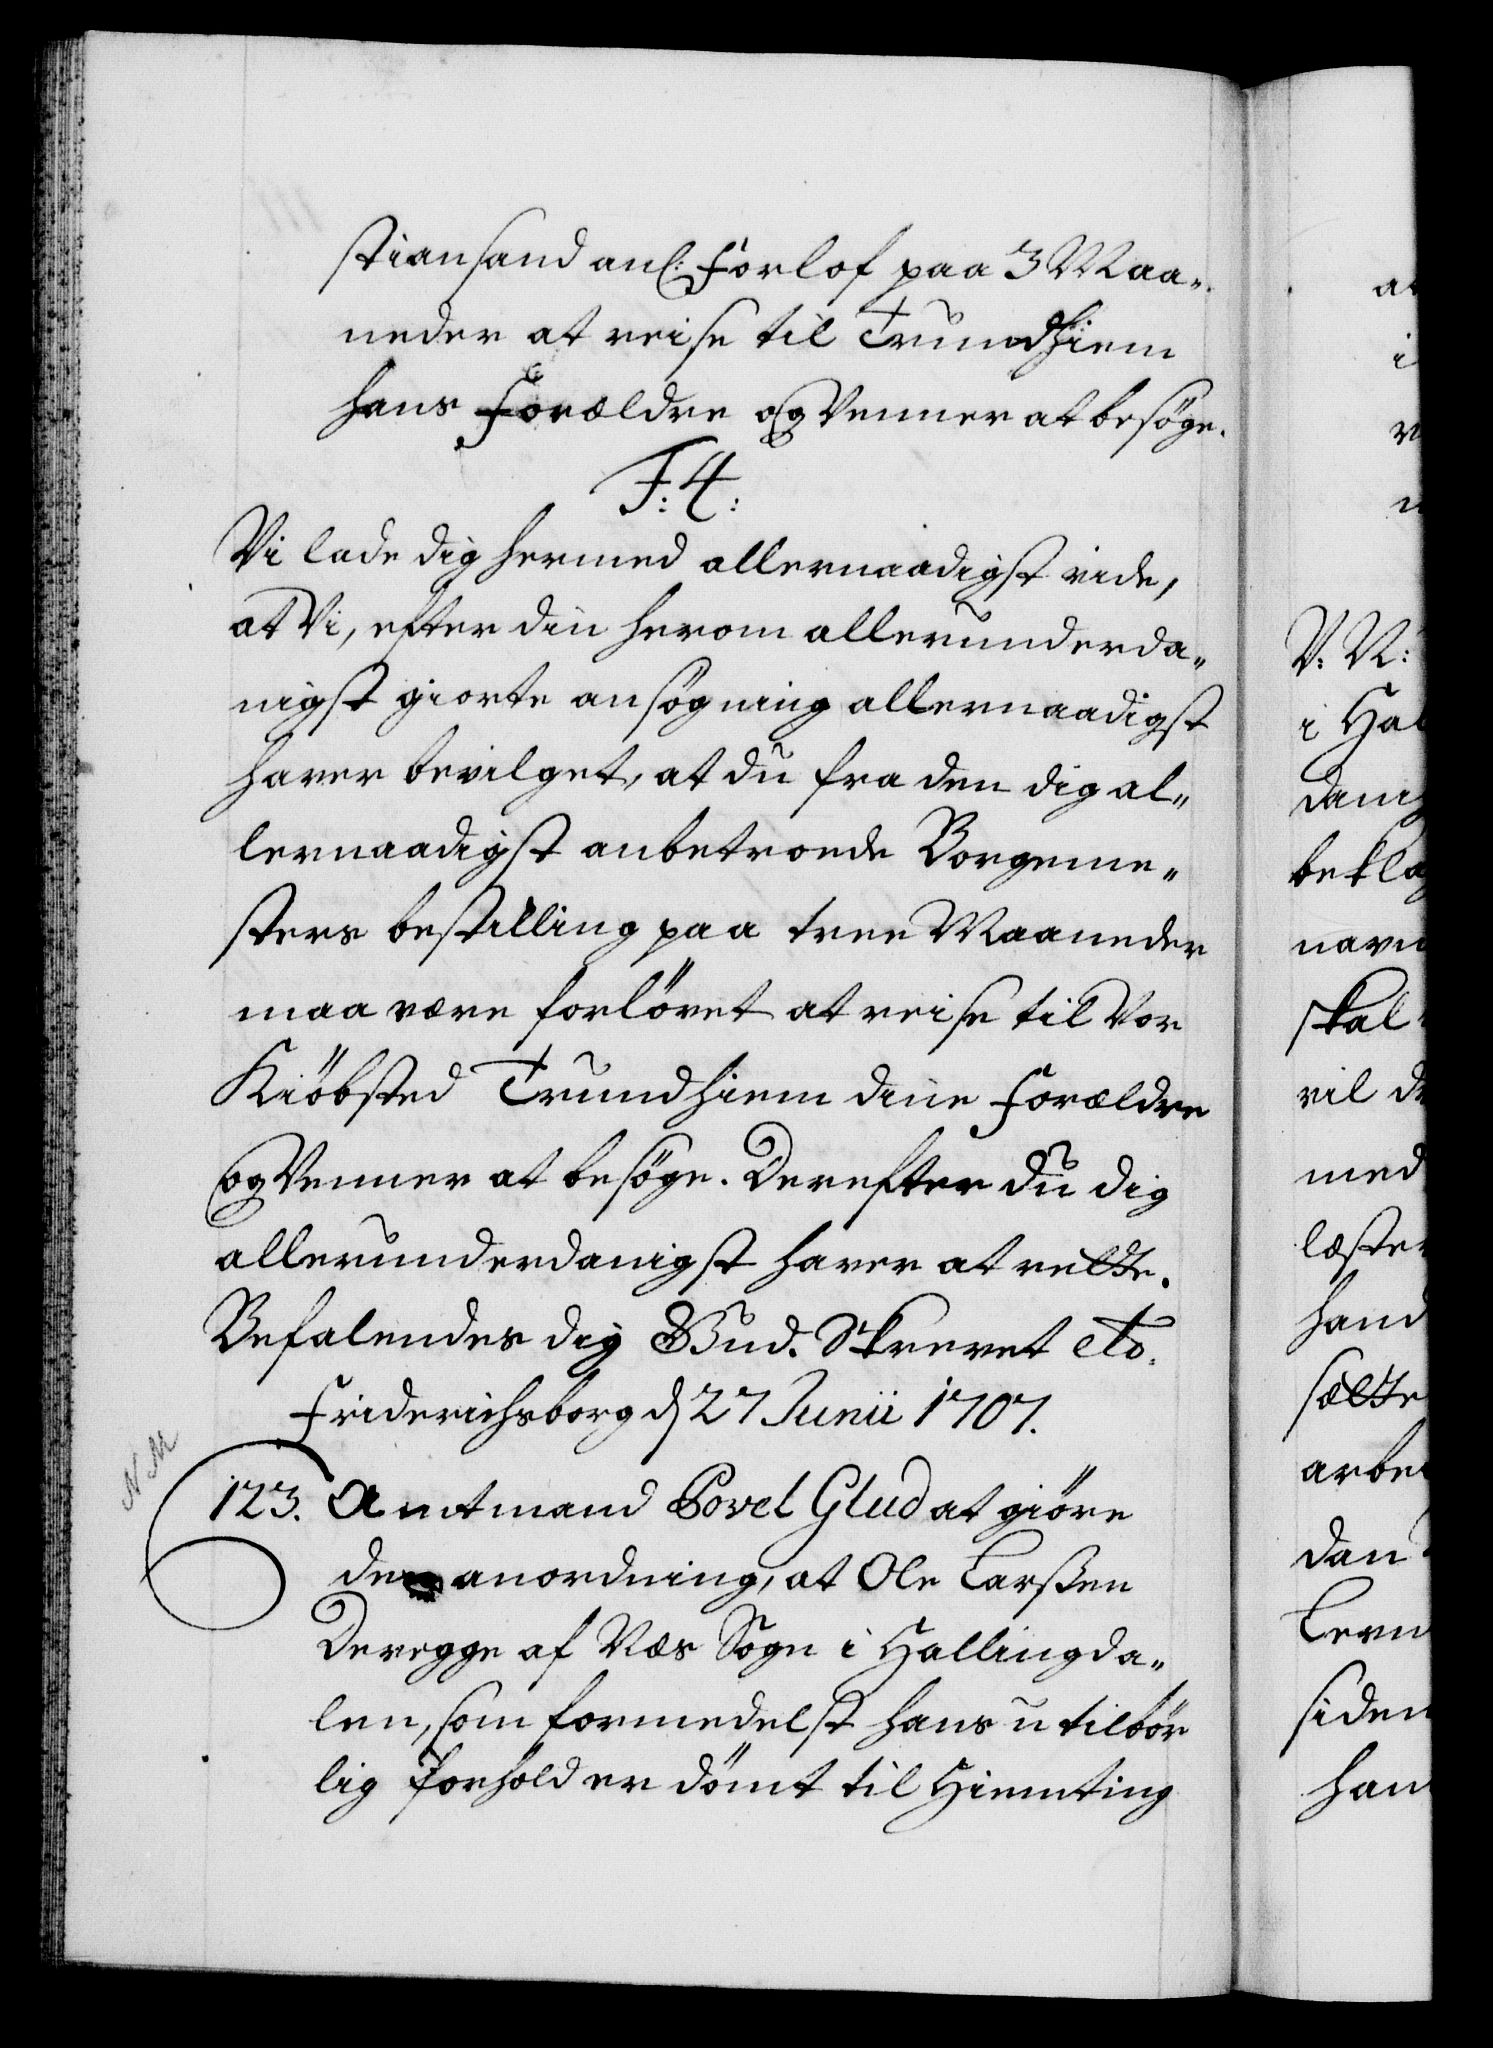 stiansand anl: Forlof paa 3 Maa„
neder at reise til Trundhiem
hans Forældre og Venner at besöge.
F: 4:
Vi lade dig hermed allernaadigst vide,
at Vi, efter din herom allerunderda„
nigst giorte ansögning allernaadigst
haver bevilget, at du fra den dig al„
lernaadigst anbetroede Borgeme„
sters bestilling paa tree Maaneder
maa være forlövet at reise til Vor
Kiöbsted Trundhiem dine Forældre
og Venner at besöge. Derefter du dig
allerunderdanigst haver at rette.
Befalendes dig Gud. Skrevet etc.
Friderichsborg d 27 Junii 1707.
N M
123. Amtmand Povel Glud at giöre
den anordning, at Ole Larssen
Deregge af Næs Sogn i Hallingda„
len, som formedelst hans utilbör
lig Forhold er dömt til Hiemting
i
V: N:
i Hal
dani
bekla
navn
skal
vil de
med
læster
hand
sætte
arbei
dan
Lern
siden
han